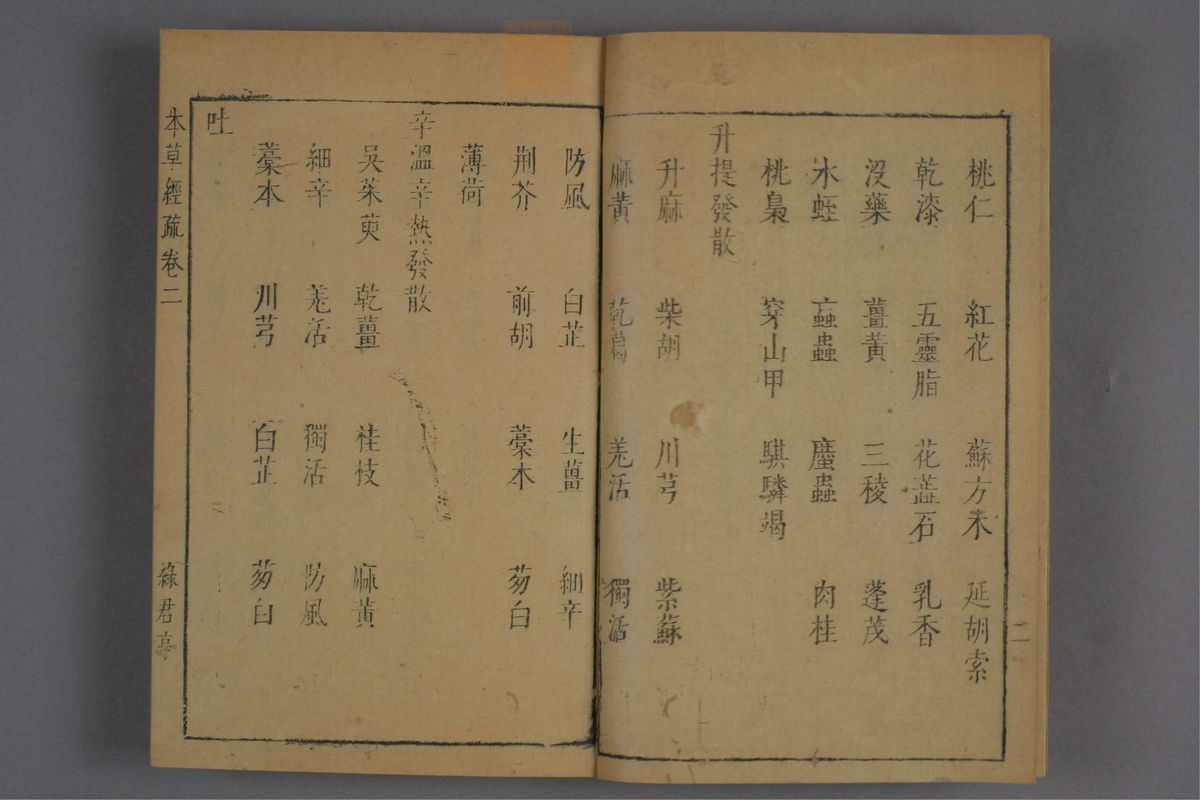 桃仁 紅花 蘇方木 延胡索
乾漆 五靈脂 花蘂石 乳香
沒藥 薑黃 三稜 蓬茂
水蛭 蝱蟲 䗪蟲 肉桂
桃梟 穿山甲 騏驎竭
升提發散
升麻 柴胡 川芎 紫蘇
麻黃 乾葛 羗活 獨活
防風 白芷 生薑 細辛
荆芥 前胡 藁本 葱白
薄荷
辛溫辛熱發散
吳茱萸 乾薑 桂枝 麻黃
細辛 羗活 獨活 防風
藁本 川芎 白芷 葱白
吐
本草經疏 卷二 綠君亭
二